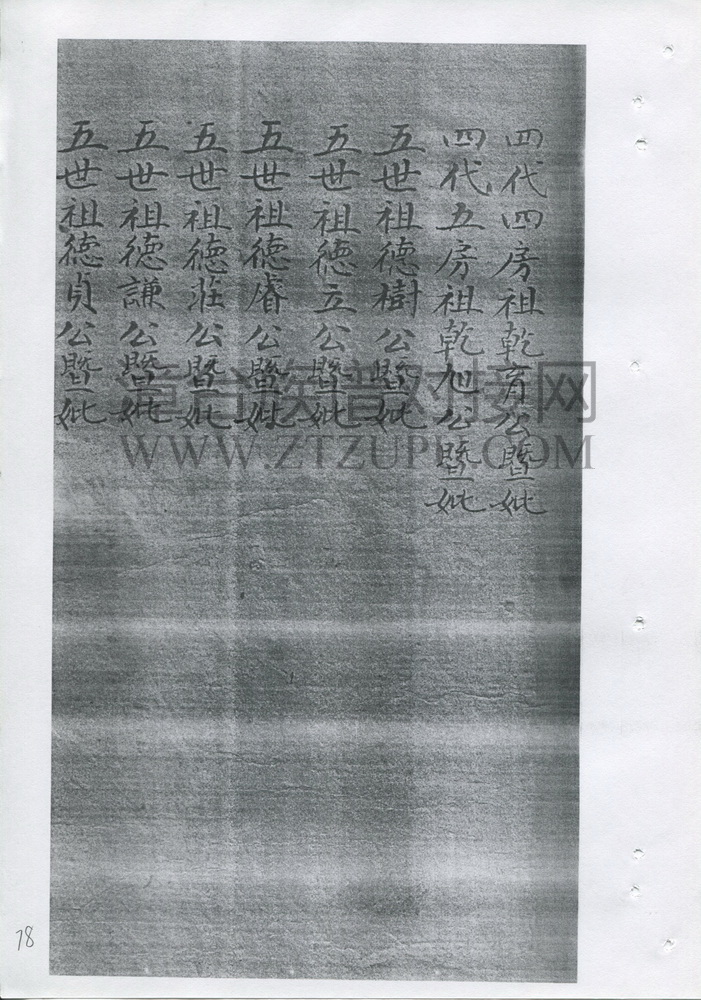 四代四房祖乾育公暨妣
四代五房祖乾旭公暨妣
五世祖德樹公暨妣
五世祖德立公暨妣
五世祖德睿公暨妣
五世祖德莊公暨妣
五世祖德謙公暨妣
五世祖德貞公暨妣
漳台族谱对接网
WWW.ZTZUPU.COM
78